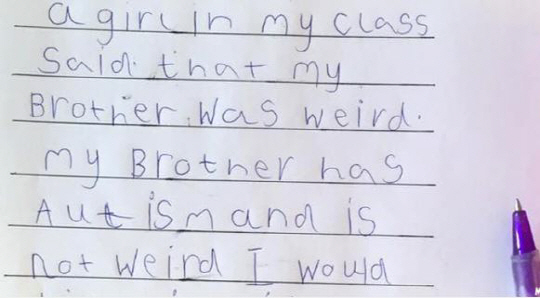 a girl in my class
Said that my
Brother was weird.
my Brother has
Autism and is
not weird I would